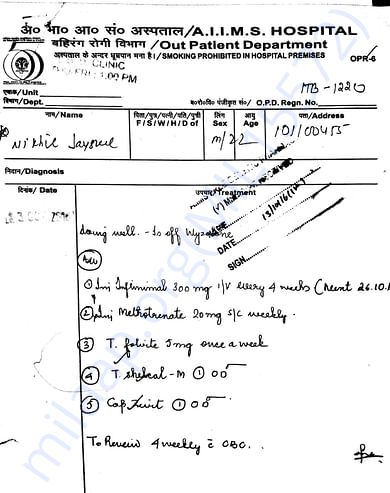 अ० भा० आ० सं० अस्पताल/A.I.I.M.S. HOSPITAL
बहिरंग रोगी विभाग/Out Patient Department
अस्पताल के अन्दर धूम्रपान मना है।/SMOKING PROHIBITED IN HOSPITAL PREMISES
OPR-6
CLINIC
PM
एकक/Unit
विभाग/Dept.
ब०रो०वि० पंजीकृत सं०/ O.P.D. Regn. No.
नाम/Name
पिता/पुत्र/पत्नी/पति/पुत्री
F/S/W/H/D of
लिंग
Sex
आयु
Age
पता/Address
Nikhil
M/22
101/00455
निदान/Diagnosis
दिनांक/ Date
उपचार/Treatment
NAME
DATE
SIGN
doing well. - Is off Wysolone
Adv
① Inj Infliximab 300 mg I/V every 4 weeks (next 26.10.
② Inj Methotrexate 20mg S/C weekly.
③ T. folvite 5mg once a week
④ T. shelcal-M ① OD
⑤ Cap ① OD
To Review 4 weekly c̄ CBC.
milaap.org